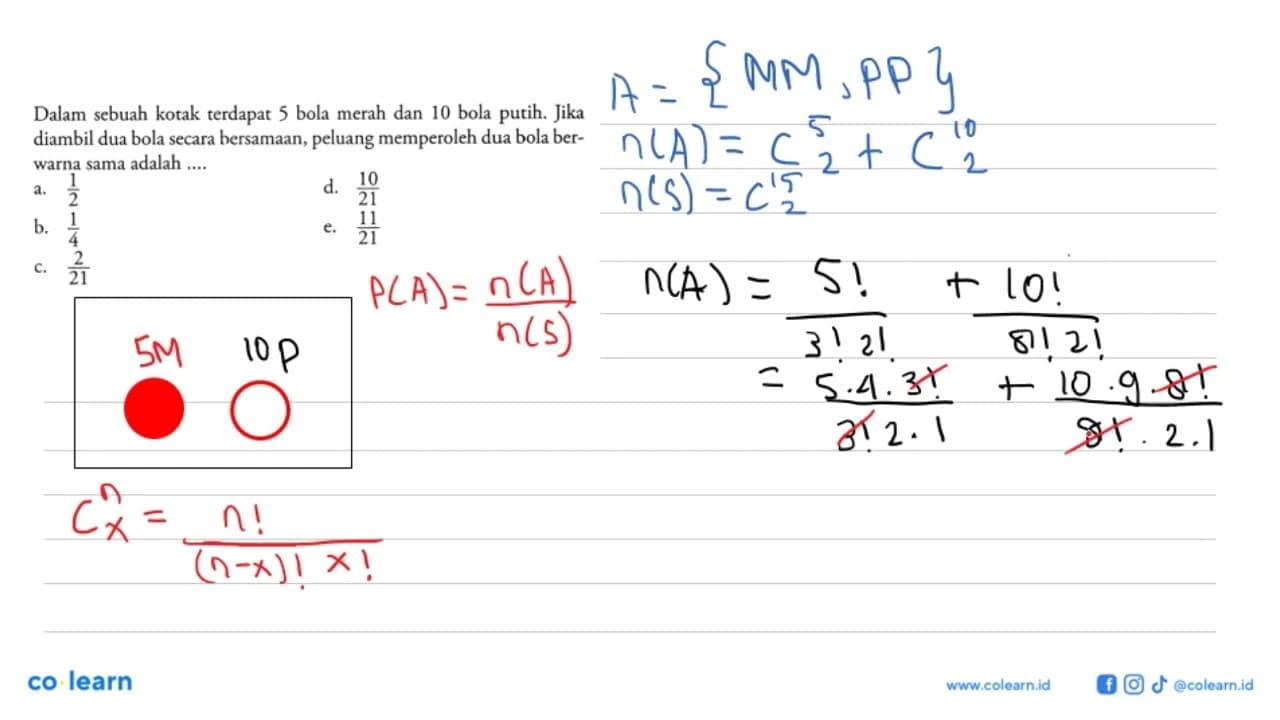 Dalam sebuah kotak terdapat 5 bola merah dan 10 bola putih. Jika
diambil dua bola secara bersamaan, peluang memperoleh dua bola ber-
warna sama adalah ....
a. 1/2
b. 1/4
c. 2/21
d. 10/21
e. 11/21
5M 10P
C^n_x = n!/((n-x)! x!)
P(A) = n(A)/n(S)
A = {MM, PP}
n(A) = C^5_2 + C^10_2
n(S) = C^15_2
n(A) = 5!/(3! 2!) + 10!/(8! 2!)
= (5.4.3!)/(3! 2.1) + (10.9.8!)/(8!.2.1)
co learn
www.colearn.id
@colearn.id